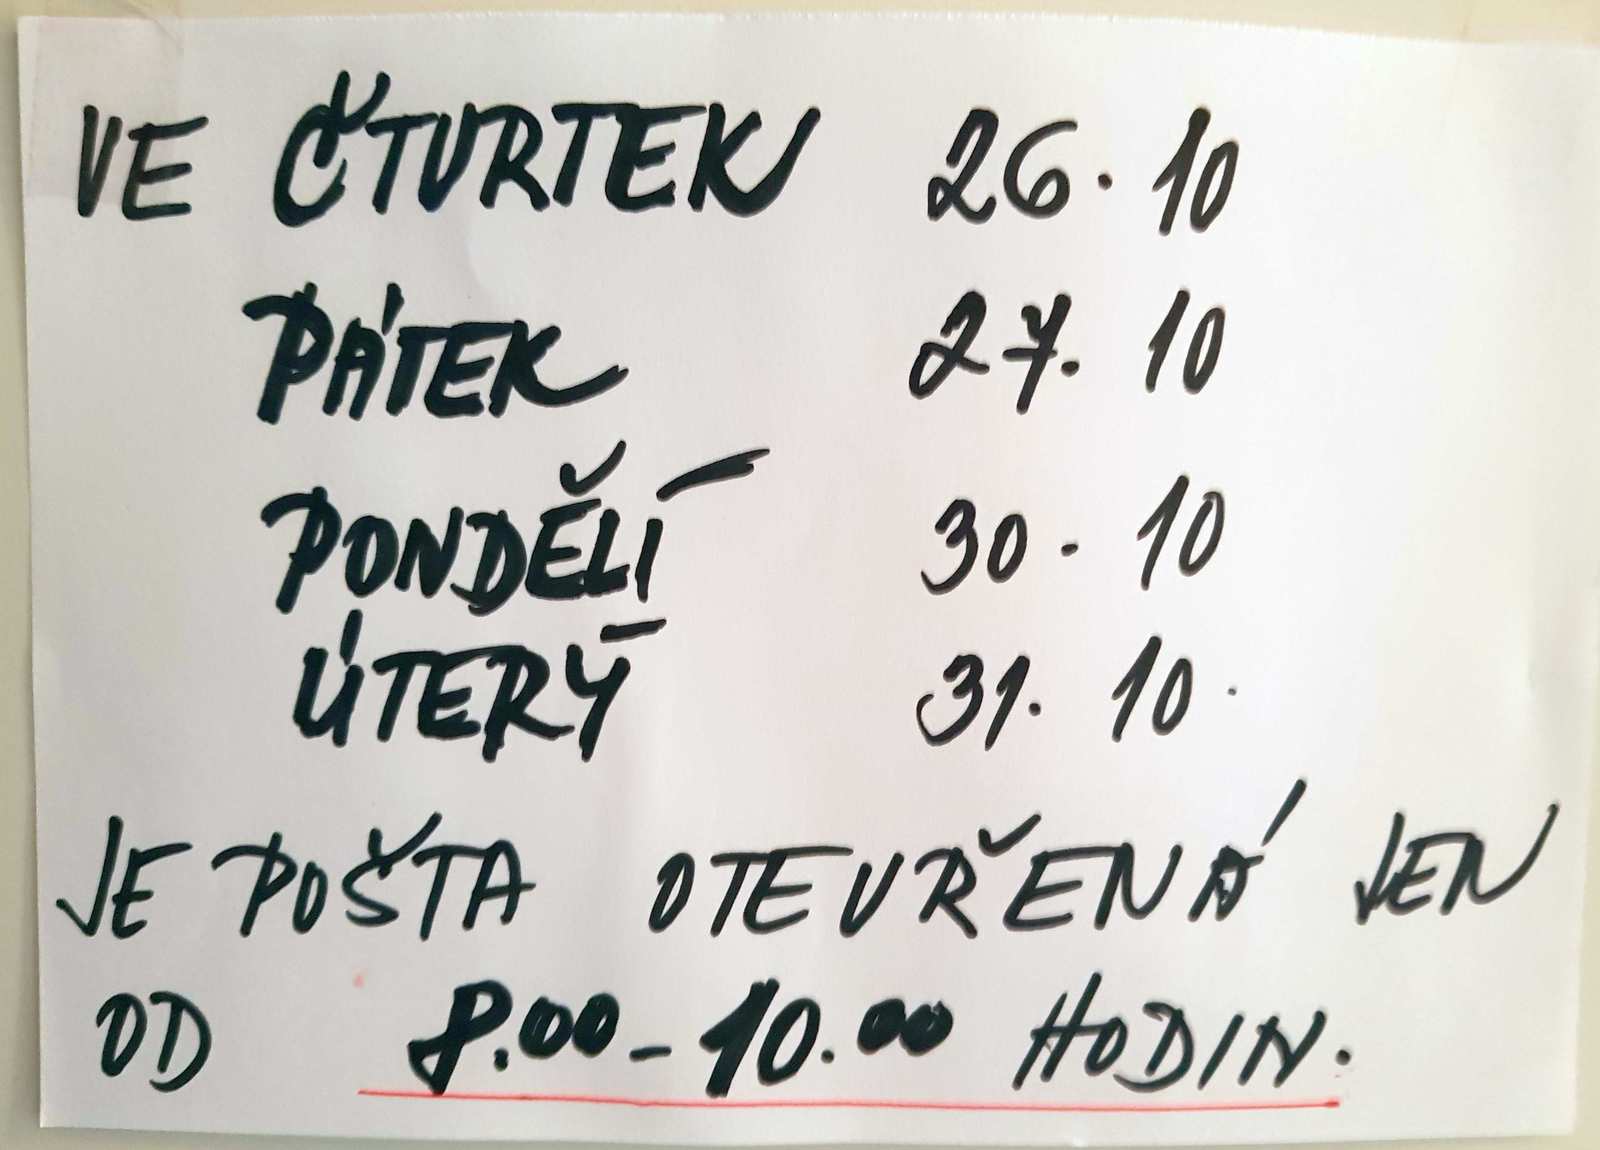 VE ČTVRTEK 26. 10
PÁTEK 27. 10
PONDĚLÍ 30. 10
ÚTERÝ 31. 10.
JE POŠTA OTEVŘENÁ JEN
OD 8.00-10.00 HODIN.